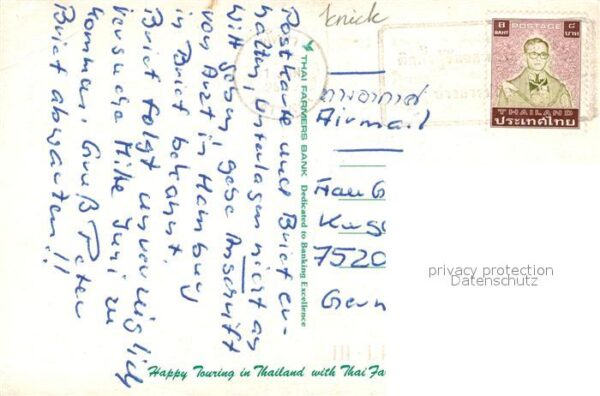 Postkarte und Brief er-
halten, Unterlagen nicht an
Witt geben, gebe Anschrift
von Arzt in Hamburg
in Brief bekannt.
Brief folgt unverzüglich
versuche Mitte Juni zu
kommen. Gruß Peter
Brief abwarten!!
THAI FARMERS BANK Dedicated to Banking Excellence
knick
8 BAHT POSTAGE ๘ บาท
THAILAND
ประเทศไทย
ทางอากาศ
Airmail
Frau G
7520
privacy protection
Datenschutz
Happy Touring in Thailand with Thai Fa